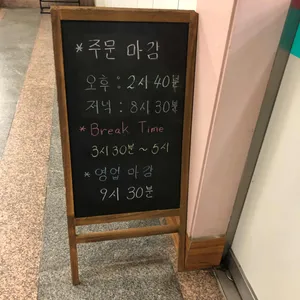 * 주문 마감
오후 : 2시 40분
저녁 : 8시 30분
* Break Time
3시 30분 ~ 5시
* 영업 마감
9시 30분